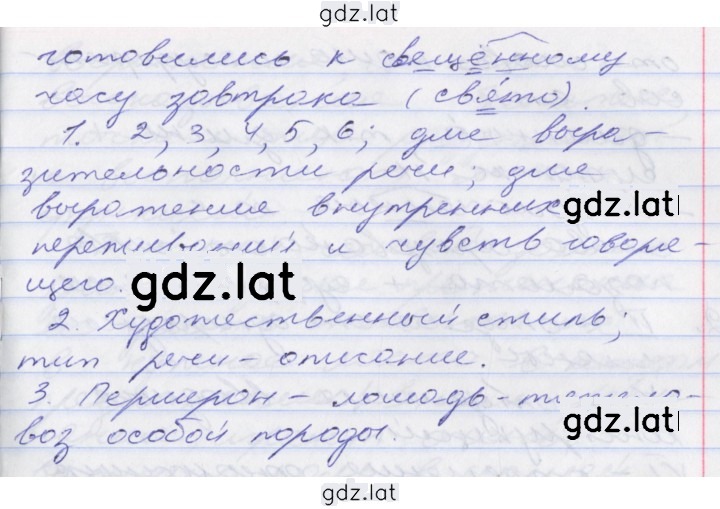 gdz.lat
готовились к свещённому
часу завтрака (свято).
1. 2, 3, 4, 5, 6; для выра-
зительности речи; для
выражения внутренних
gdz.lat
переживаний и чувств говоря-
щего.
gdz.lat
2. Художественный стиль;
тип речи - описание.
3. Першерон - лошадь-
воз особой породы.
gdz.lat
gdz.lat